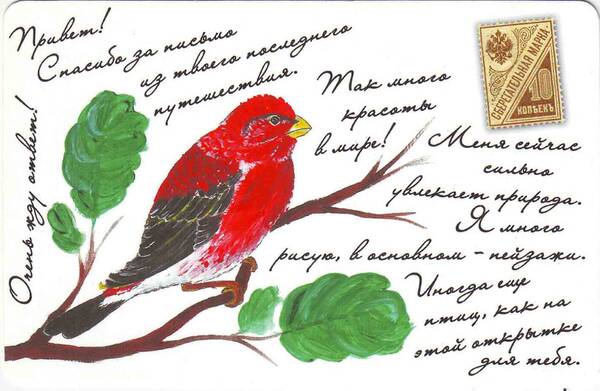 Привет!
Спасибо за письмо
из твоего последнего
путешествия.
Так много
красоты
в мире!
Меня сейчас
сильно
увлекает природа.
Я много
рисую, в основном - пейзажи.
Иногда еще
птиц, как на
этой открытке
для тебя.
Очень жду ответ!
СБЕРЕГАТЕЛЬНАЯ МАРКА
10
КОПѢЕКЪ